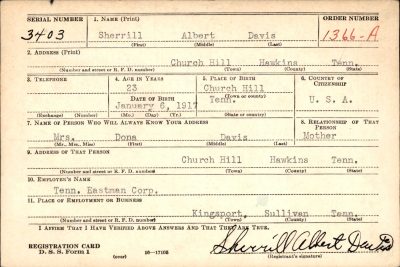 SERIAL NUMBER 1. NAME (Print) ORDER NUMBER
3403 Sherrill Albert Davis 1366-A
(First) (Middle) (Last)
2. ADDRESS (Print)
Church Hill Hawkins Tenn.
(Number and street or R. F. D. number) (Town) (County) (State)
3. TELEPHONE 4. AGE IN YEARS 5. PLACE OF BIRTH 6. COUNTRY OF CITIZENSHIP
23 Church Hill
DATE OF BIRTH (Town or county)
January 6, 1917 Tenn. U. S. A.
(Exchange) (Number) (Mo.) (Day) (Yr.) (State or country)
7. NAME OF PERSON WHO WILL ALWAYS KNOW YOUR ADDRESS 8. RELATIONSHIP OF THAT PERSON
Mrs. Dona Davis Mother
(Mr., Mrs., Miss) (First) (Middle) (Last)
9. ADDRESS OF THAT PERSON
Church Hill Hawkins Tenn.
(Number and street or R. F. D. number) (Town) (County) (State)
10. EMPLOYER'S NAME
Tenn. Eastman Corp.
11. PLACE OF EMPLOYMENT OR BUSINESS
Kingsport, Sullivan Tenn.
(Number and street or R. F. D. number) (Town) (County) (State)
I AFFIRM THAT I HAVE VERIFIED ABOVE ANSWERS AND THAT THEY ARE TRUE.
REGISTRATION CARD Sherrill Albert Davis
D. S. S. Form 1 (over) 16-17105 (Registrant's signature)